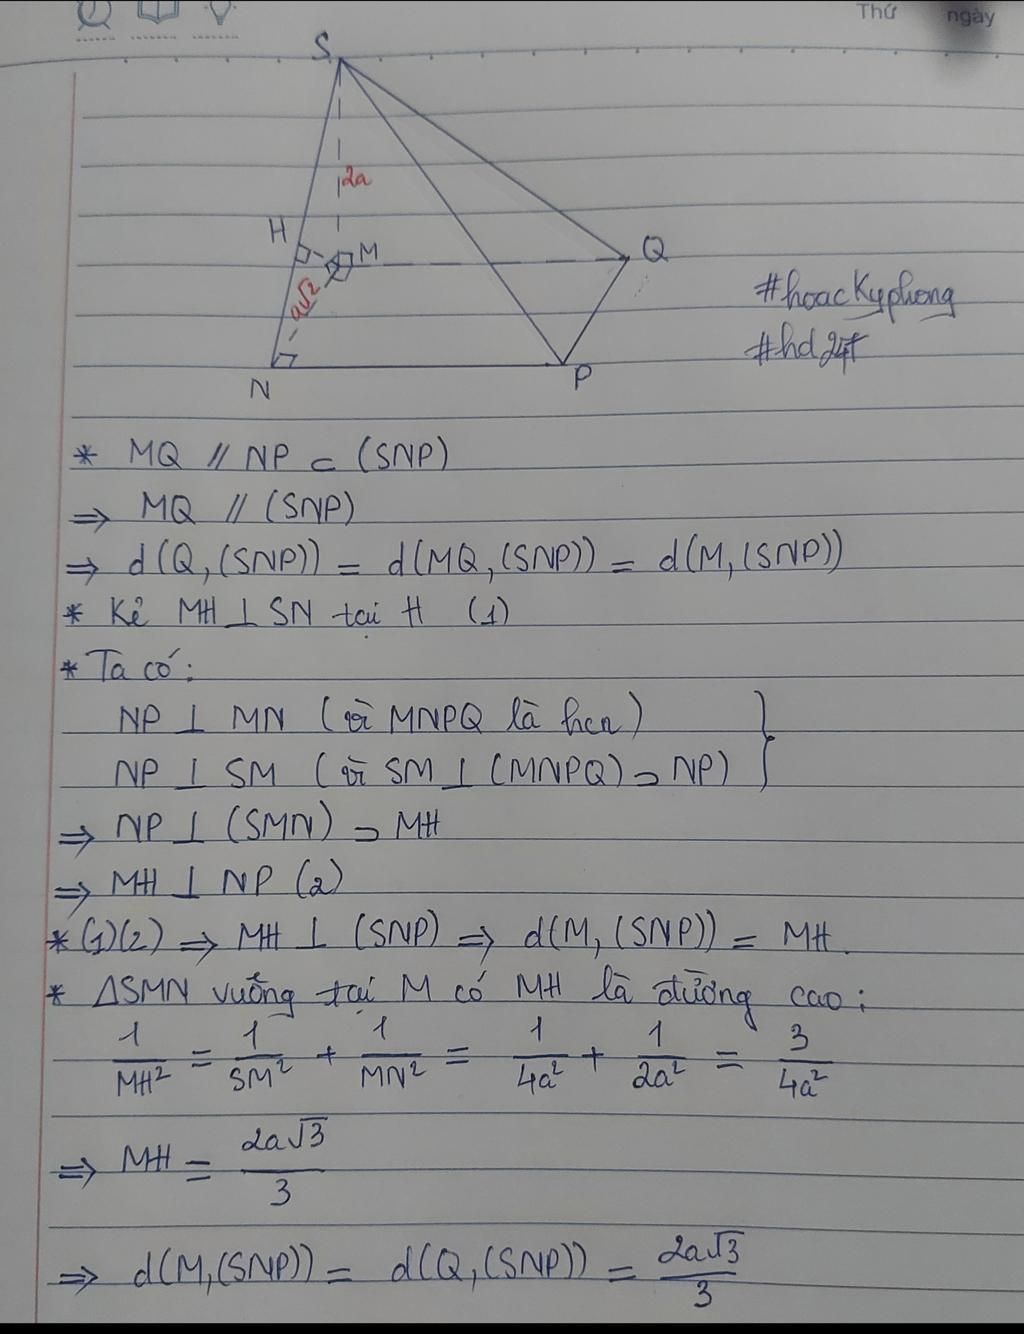 Thứ ngày
S
2a
H
M
Q
a√2
N
P
#hoackyphong
#hd247
* MQ // NP ⊂ (SNP)
⇒ MQ // (SNP)
⇒ d(Q,(SNP)) = d(MQ,(SNP)) = d(M,(SNP))
* Kẻ MH ⊥ SN tại H (1)
* Ta có:
NP ⊥ MN (vì MNPQ là hcn)
NP ⊥ SM (vì SM ⊥ (MNPQ) ⊃ NP) }
⇒ NP ⊥ (SMN) ⊃ MH
⇒ MH ⊥ NP (2)
* (1)(2) ⇒ MH ⊥ (SNP) ⇒ d(M,(SNP)) = MH.
* ΔSMN vuông tại M có MH là đường cao:
1/MH² = 1/SM² + 1/MN² = 1/4a² + 1/2a² = 3/4a²
⇒ MH = 2a√3/3
⇒ d(M,(SNP)) = d(Q,(SNP)) = 2a√3/3